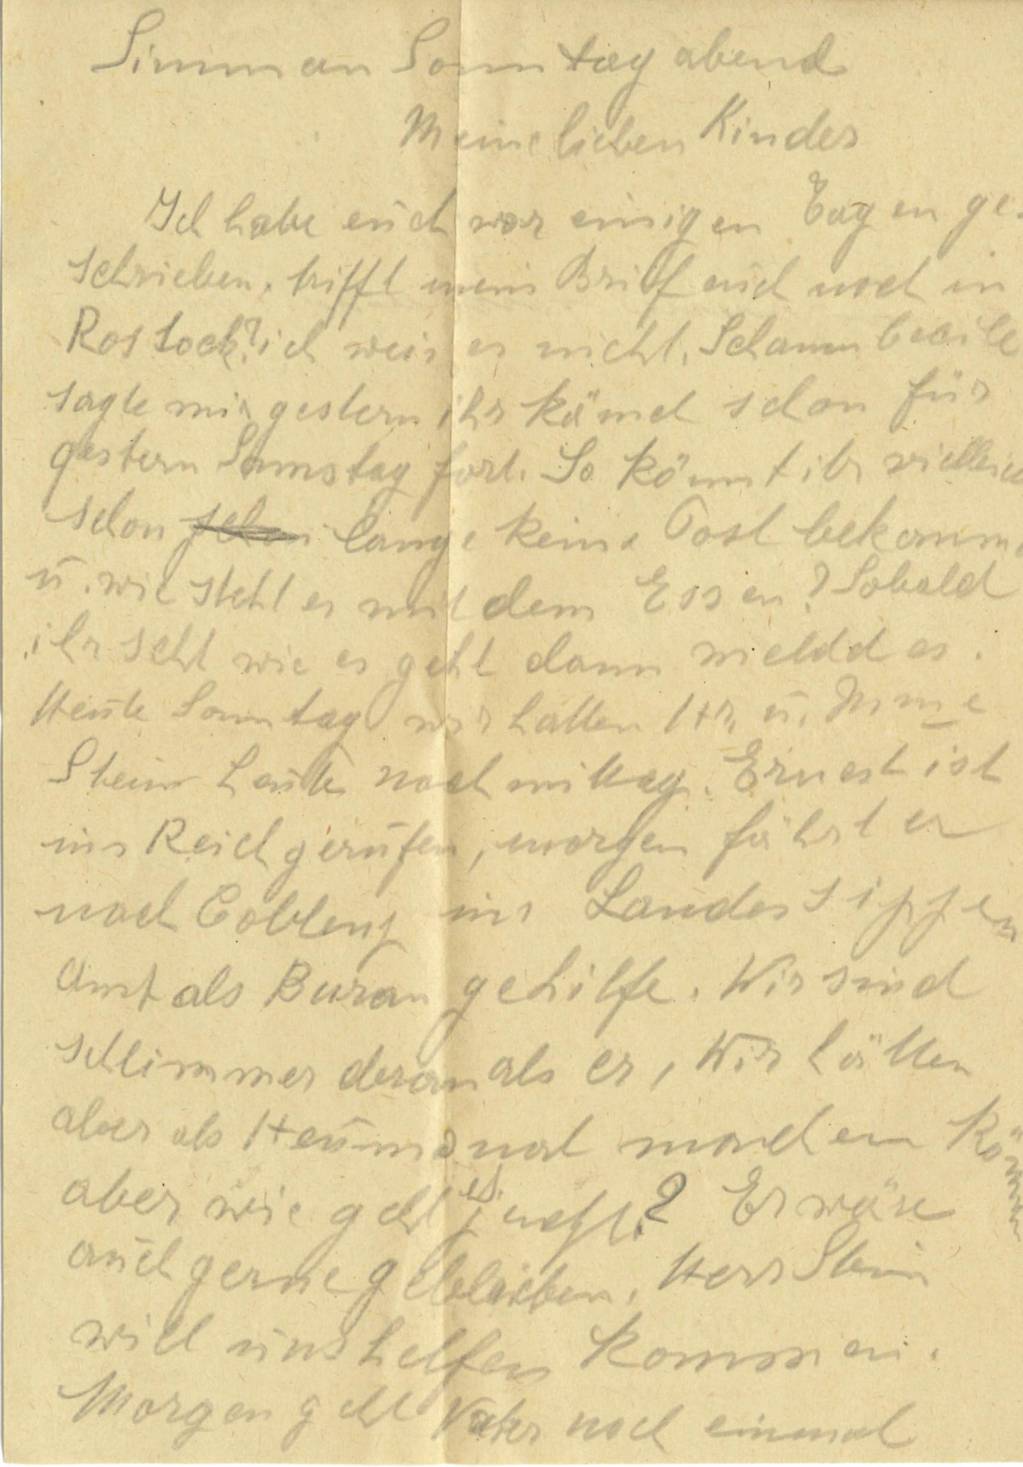 Simmern Sonntag abend
Meine lieben Kinder
Ich habe euch vor einigen Tagen ge-
schrieben, trifft mein Brief euch noch in
Rostock? ich weis es nicht.
sagte mir gestern ihr kämet schon für
gestern Samstag fort. So könnt ihr
schon schon lange keine Post bekomm
u. wie steht es mit dem Essen? Sobald
ihr seht wie es geht dann meldd es.
Heute Sonntag wir hatten Hr. u. Mme
Stein heute nachmittag. Ernest ist
ins Reich gerufen, morgen fährt er
nach Coblenz ins Landessippen
Amt als Buran gehilfe. Wir sind
schlimmer deran als er, Wir hätten
aber als noch machen können
aber wie geht es jetzt? Er wäre
auch gerne geblieben. Herr Stein
will uns helfen kommen.
Morgen geht Vater noch einmal